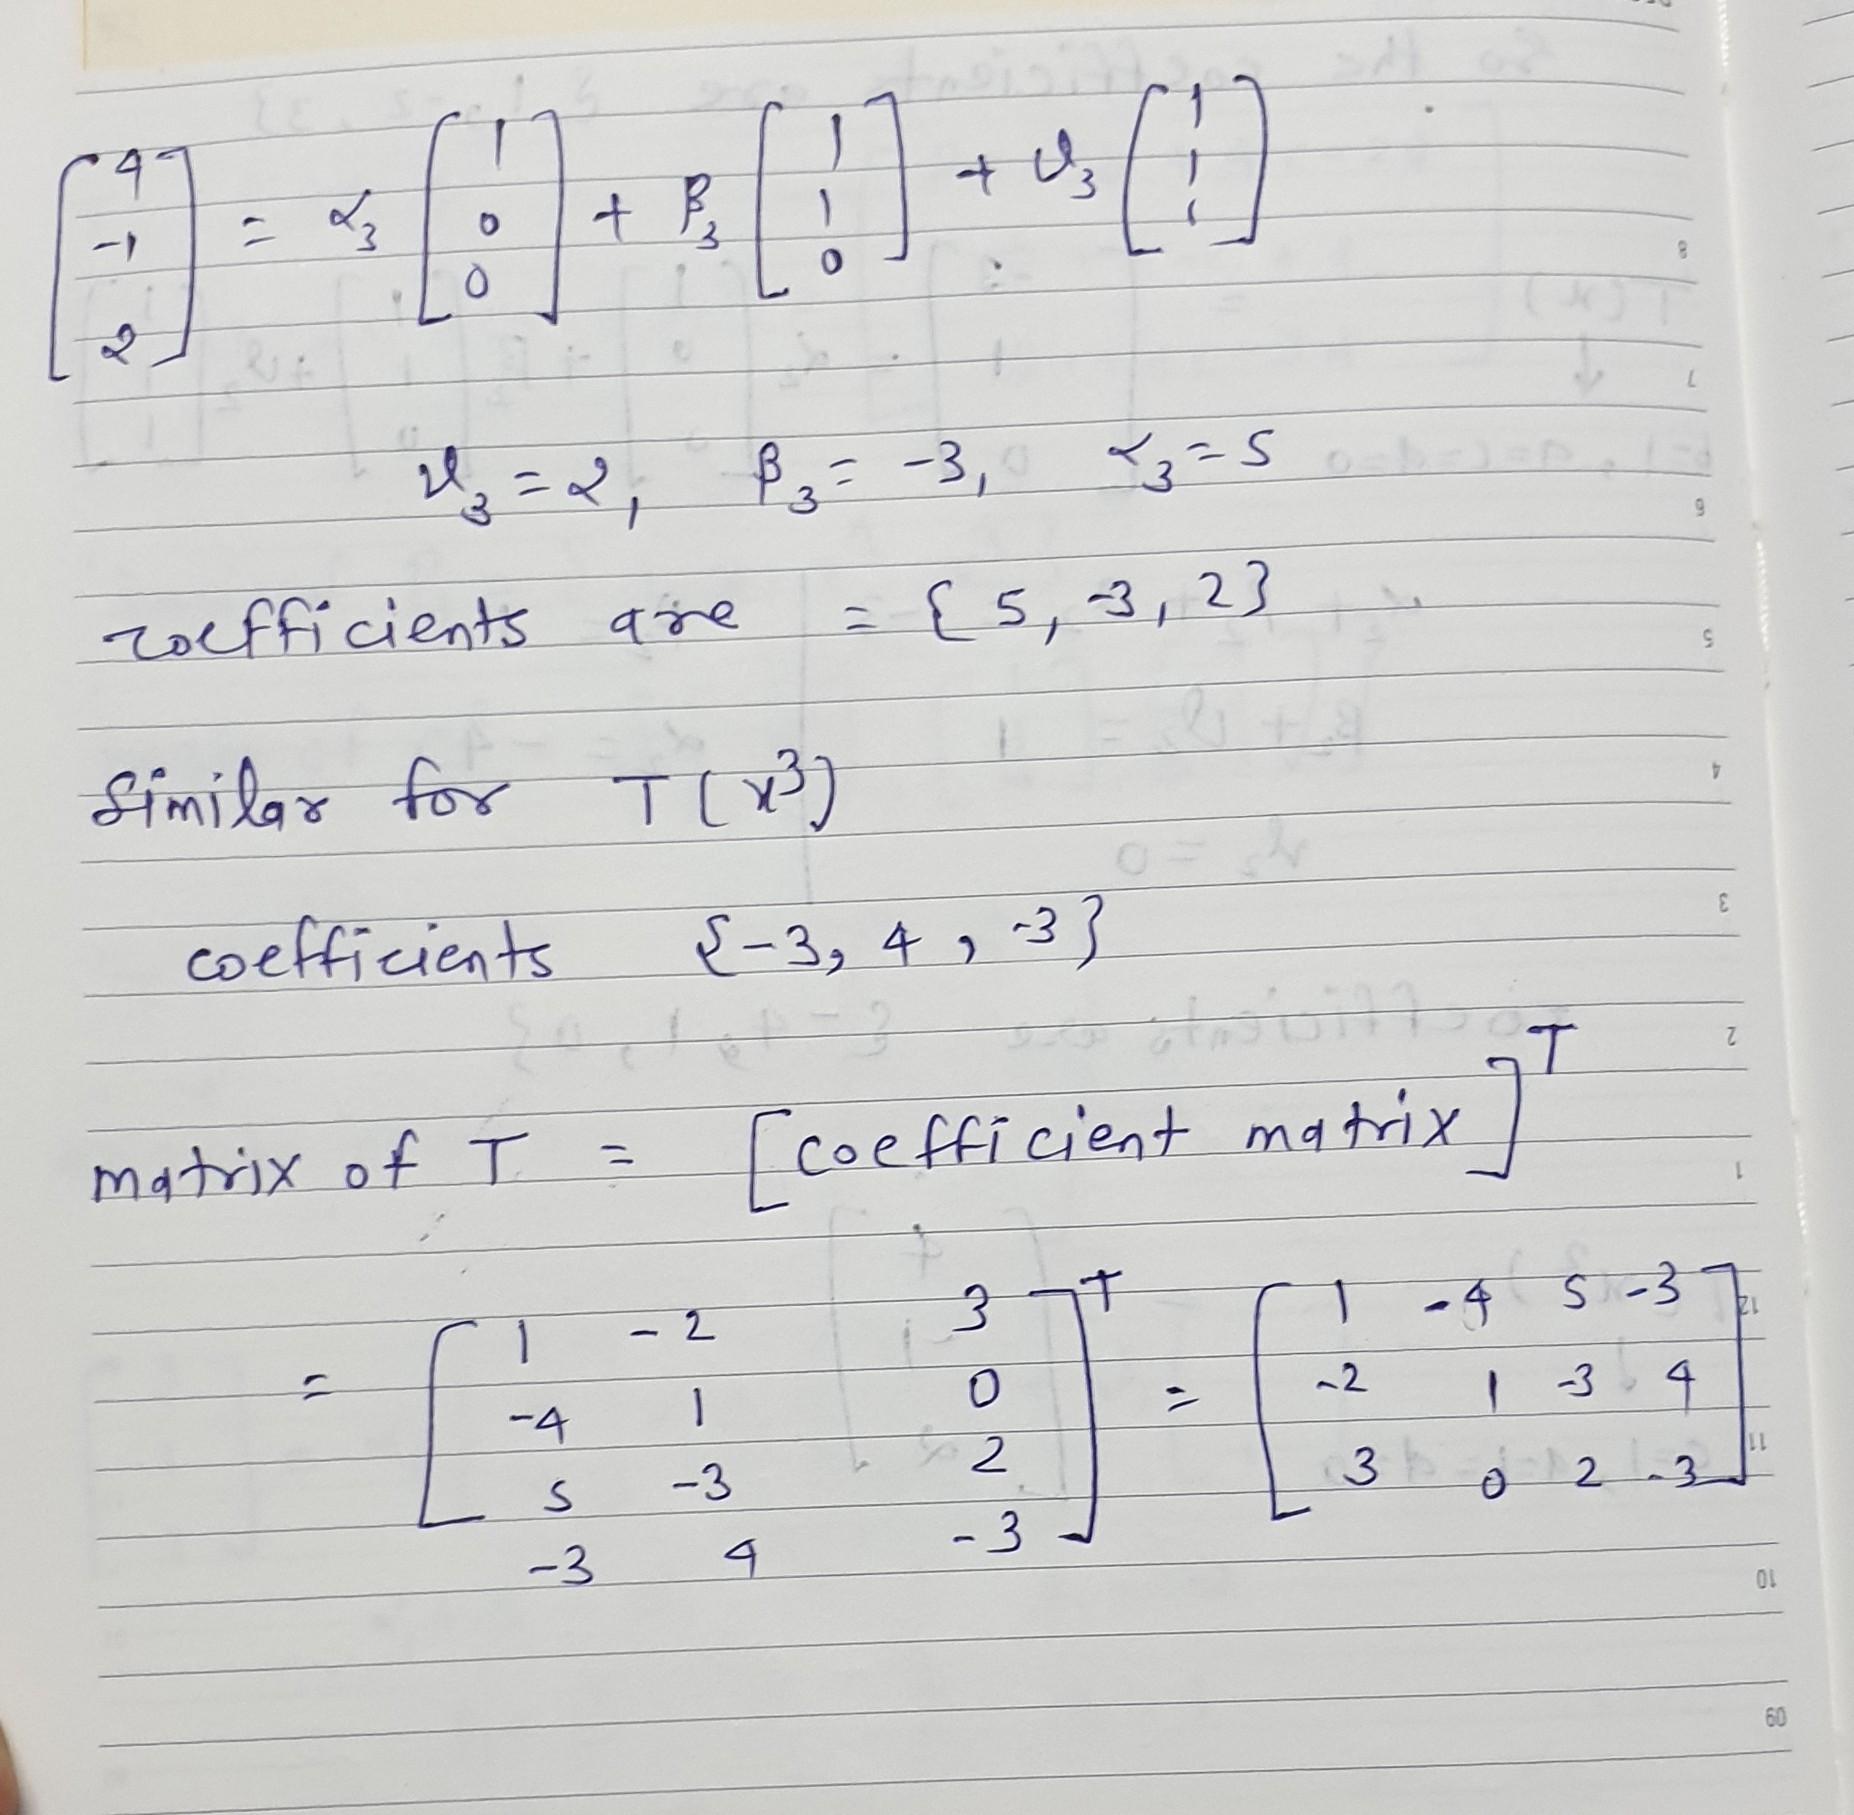 [4 -1 2] = α₃ [1 0 0] + β₃ [1 1 0] + ϑ₃ [1 1 1]
ϑ₃ = 2, β₃ = -3, α₃ = 5
coefficients are = { 5, -3, 2}
Similar for T(x³)
coefficients {-3, 4, -3}
matrix of T = [coefficient matrix]ᵀ
= [1 -2 3
-4 1 0
5 -3 2
-3 4 -3]ᵀ = [1 -4 5 -3
-2 1 -3 4
3 0 2 -3]
8
7
6
5
4
3
2
1
12
11
10
09